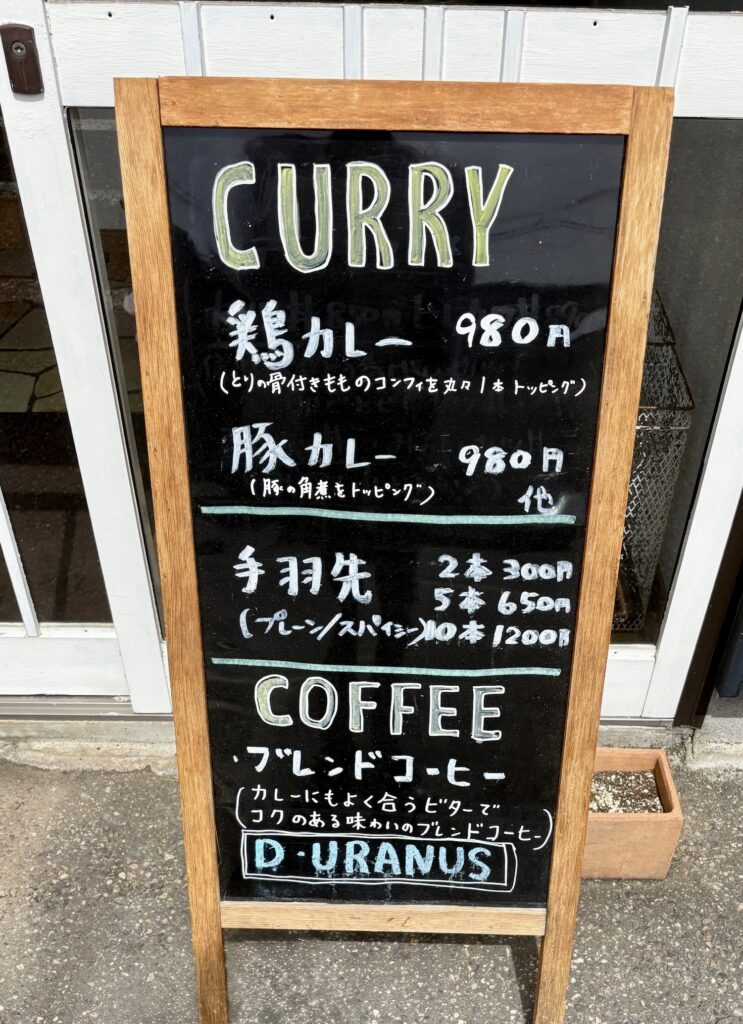 CURRY
鶏カレー 980円
(とりの骨付きもものコンフィを丸々1本トッピング)
豚カレー 980円
(豚の角煮をトッピング) 他
手羽先 2本 300円
5本 650円
(プレーン/スパイシー) 10本 1200円
COFFEE
・ブレンドコーヒー
(カレーにもよく合うビターで
コクのある味わいのブレンドコーヒー)
D・URANUS